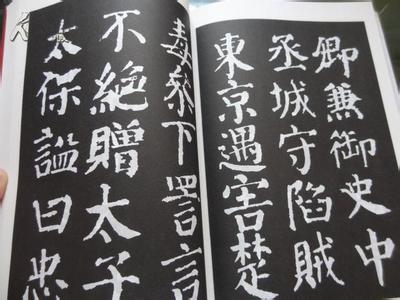 卿兼御史中
丞城守陷賊
東京遇害楚
毒叅下詈言
不絕贈太子
太保謚曰忠